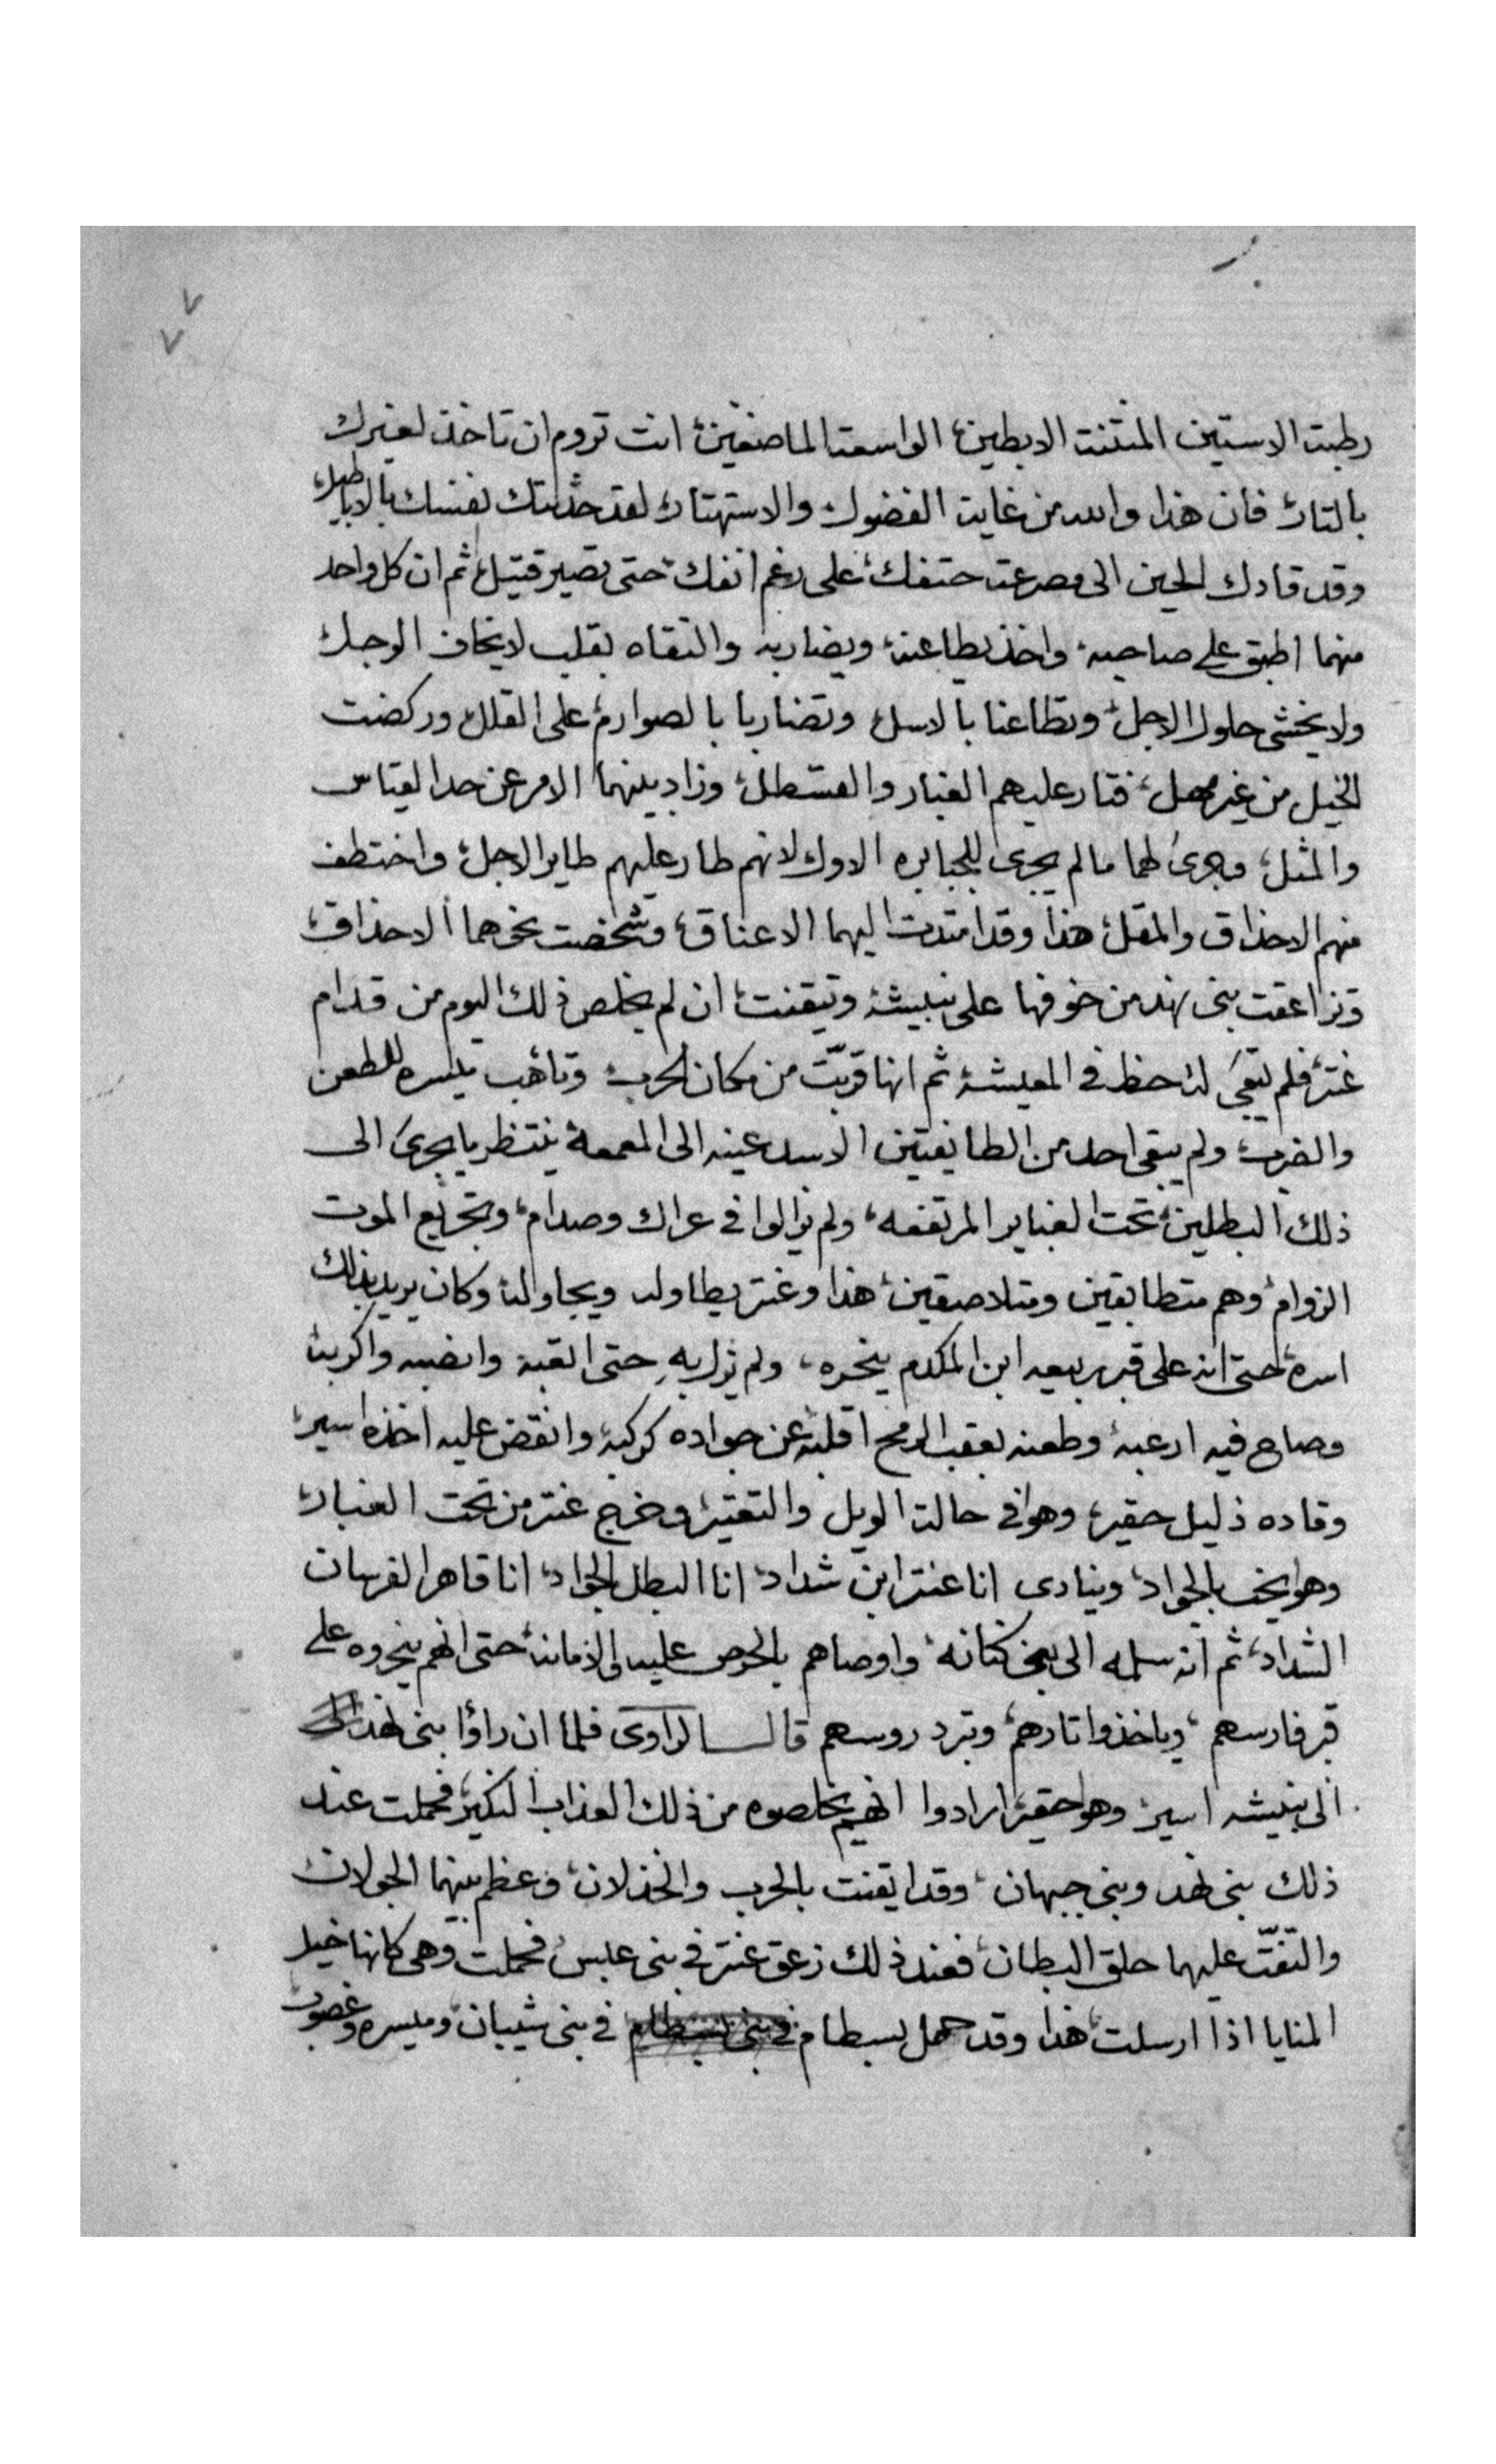 رطبت الاستين المنتنت الابطين، الواسعت الماضغين، انت تروم ان تاخذ لغيرك
بالتار، فان هذا والله من غايت الفضول والاستهتار، لقد حدثتك نفسك بالاباطيل،
وقد قادك الحين الى مصرعت حتفك، على رغم انفك، حتى تصير قتيل، ثم ان كل واحد
منهما اطبق على صاحبه، واخذ يطاعنه، ويضاربه والتقاه بقلب لا يخاف الوجل،
ولا يخشى حلول الاجل، وتطاعنا بالاسل، وتضاربا بالصوارم، على القلل، وركضت
الخيل من غير مهل، فتار عليهم الغبار والقسطل، وزاد بينهما الامر عن حد القياس
والمثل، وجرى لهما ما لم يجرى للجبابره الاول لانهم طار عليهم طاير الاجل، واختطف
منهم الاحذاق والمقل، هذا وقد امتدت اليهما الاعناق، وشخصت نحوهما الاحذاق،
وتزاعقت بنى نهد من خوفها على نبيشه، وتيقنت، ان لم يخلص ذلك اليوم من قدام
عنتر، فلم تبقى له حظ في المعيشه، ثم انها قربت من مكان الحرب، وتاهب ميسره للطعن
والضرب، ولم يبقى احد من الطايفتين الا سد عينه الى المعمعة ينتظر ما يجرى الى
ذلك البطلين، تحت الغباير المرتفعه، ولم يزالوا في عراك وصدام، وتجريع الموت
الزوام، وهم متطابقين ومتلاصقين، هذا وعنتر يطاوله ويجاوله، وكان يريد بذلك
اسره، حتى انه على قبر ربيعه ابن المكدم ينحره، ولم يزل به حتى اتعبه وانصبه واكربه
وصاح فيه ارعبه، وطعنه بعقب الرمح اقلبه، عن جواده كركبه، وانقض عليه اخذه اسير،
وقاده ذليل حقير، وهو في حالة الويل والتعتير، وخرج عنتر من تحت الغبار،
وهو يخب بالجواد، وينادى انا عنتر ابن شداد، انا البطل الجواد، انا قاهر الفرسان
الشداد، ثم انه سلمه الى بنى كنانه، واوصاهم بالحرص عليه والامانه، حتى انهم ينحروه على
قبر فارسهم، وياخذوا تارهم، وتبرد روسهم قال الراوى فلما ان راؤا بنى نهد
الى نبيشه اسير، وهو حقير، ارادوا انهم يخلصوه من ذلك العذاب النكير، فحملت عند
ذلك بنى نهد وبنى جبهان، وقد ايقنت بالحرب والخذلان، وعظم بينهما الجولان،
والتقت عليهما حلق البطان، فعند ذلك زعق عنتر في بنى عبس، فحملت وهى كانها خيل
المنايا اذا ارسلت، هذا وقد حمل بسطام في بنى شيبان، وميسره وغصوب